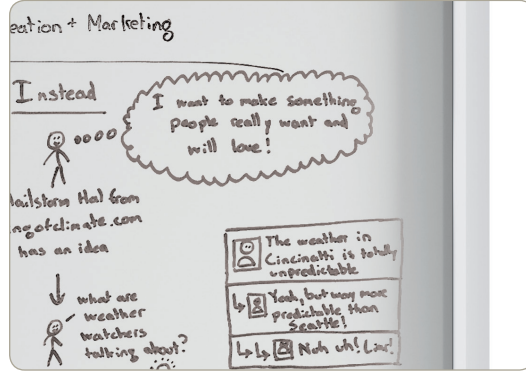 eation + Marketing
Instead
I want to make something
people really want and
will love!
ailstorm Hal from
ngofclimate.com
has an idea
what are
weather
watchers
talking about?
The weather in
Cincinatti is totally
unpredictable
Yeah, but way more
predictable than
Seattle!
Nuh uh! Liar!